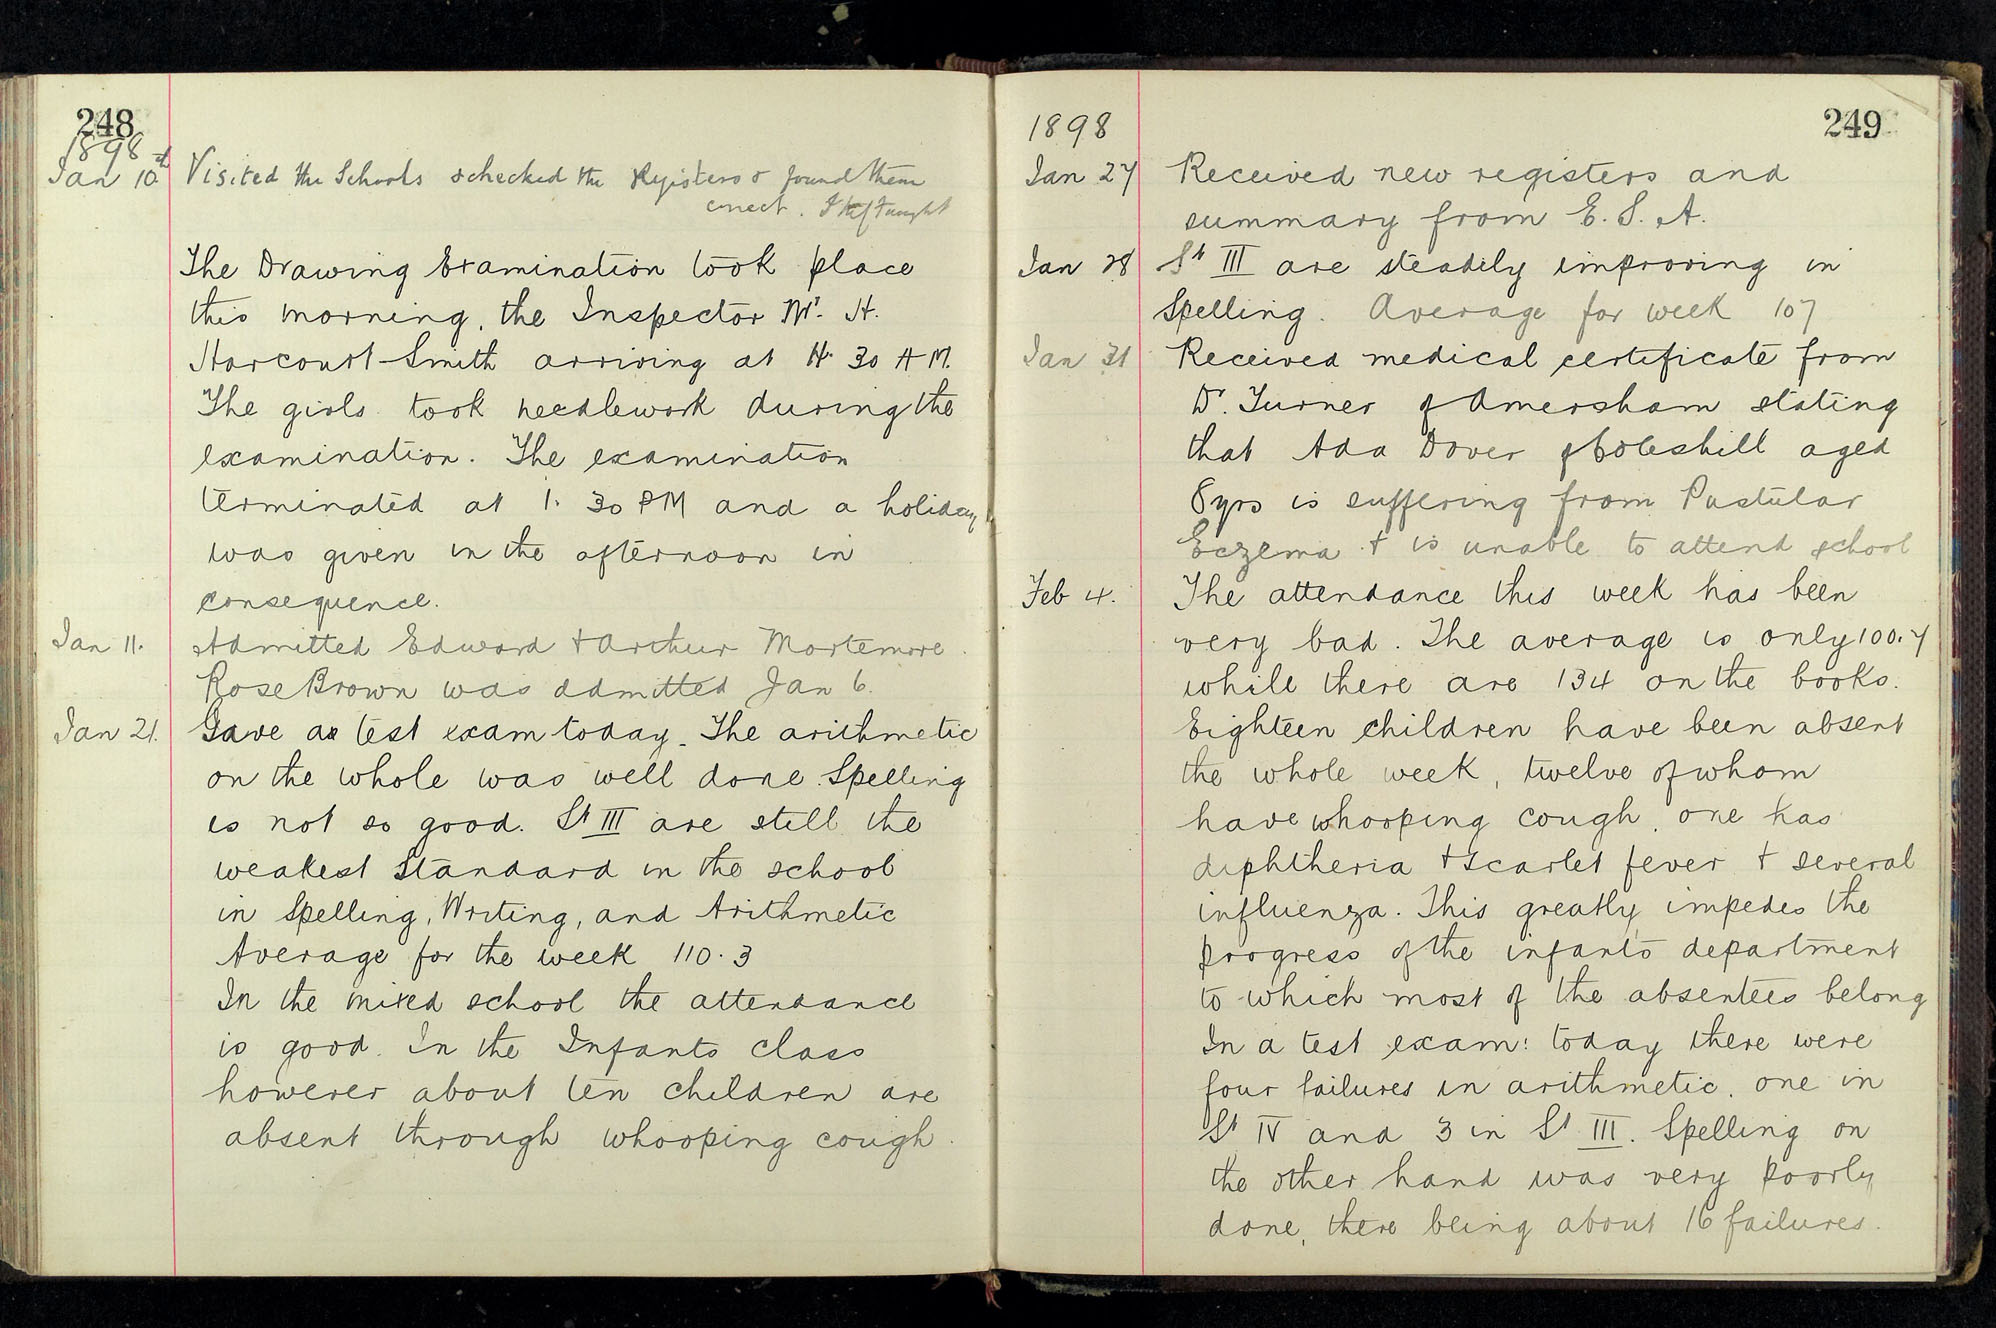 248
1898
Jan 10th Visited the Schools & checked the Registers & found them
correct.
The Drawing Examination took place
this morning, the Inspector Mr. H.
Harcourt-Smith arriving at 11. 30 AM.
The girls took needlework during the
examination. The examination
terminated at 1. 30 PM and a holiday
was given in the afternoon in
consequence.
Jan 11. Admitted Edward + Arthur Mortemore.
Rose Brown was admitted Jan 6.
Jan 21. Gave a test exam today. The arithmetic
on the whole was well done. Spelling
is not so good. St III are still the
weakest Standard in the school
in Spelling, Writing, and Arithmetic
Average for the week 110.3
In the mixed school the attendance
is good. In the Infants class
however about ten children are
absent through whooping cough.
1898
249
Jan 27 Received new registers and
summary from E. S. A.
Jan 28 St III are steadily improving in
Spelling. Average for week 107
Jan 31 Received medical certificate from
Dr. Turner of Amersham stating
that Ada Dover of Coleshill aged
8yrs is suffering from Pustular
Eczema + is unable to attend school
Feb 4. The attendance this week has been
very bad. The average is only 100.7
while there are 134 on the books.
Eighteen children have been absent
the whole week, twelve of whom
have whooping cough, one has
diphtheria + scarlet fever + several
influenza. This greatly impedes the
progress of the infants department
to which most of the absentees belong
In a test exam: today there were
four failures in arithmetic, one in
St IV and 3 in St III. Spelling on
the other hand was very poorly
done, there being about 16 failures.